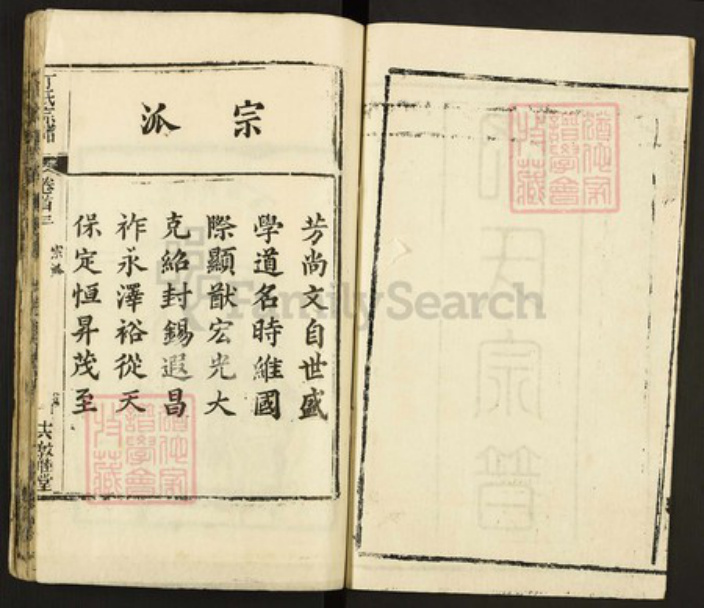 宗派
芳尚文自世盛
學道名時維國
際顯猷宏光大
克紹封錫遐昌
祚永澤裕從天
保定恒昇茂至
丁氏宗譜
卷首三
宗派
敦睦堂
譜學會
特藏
FamilySearch
丁氏宗譜
譜學會
特藏